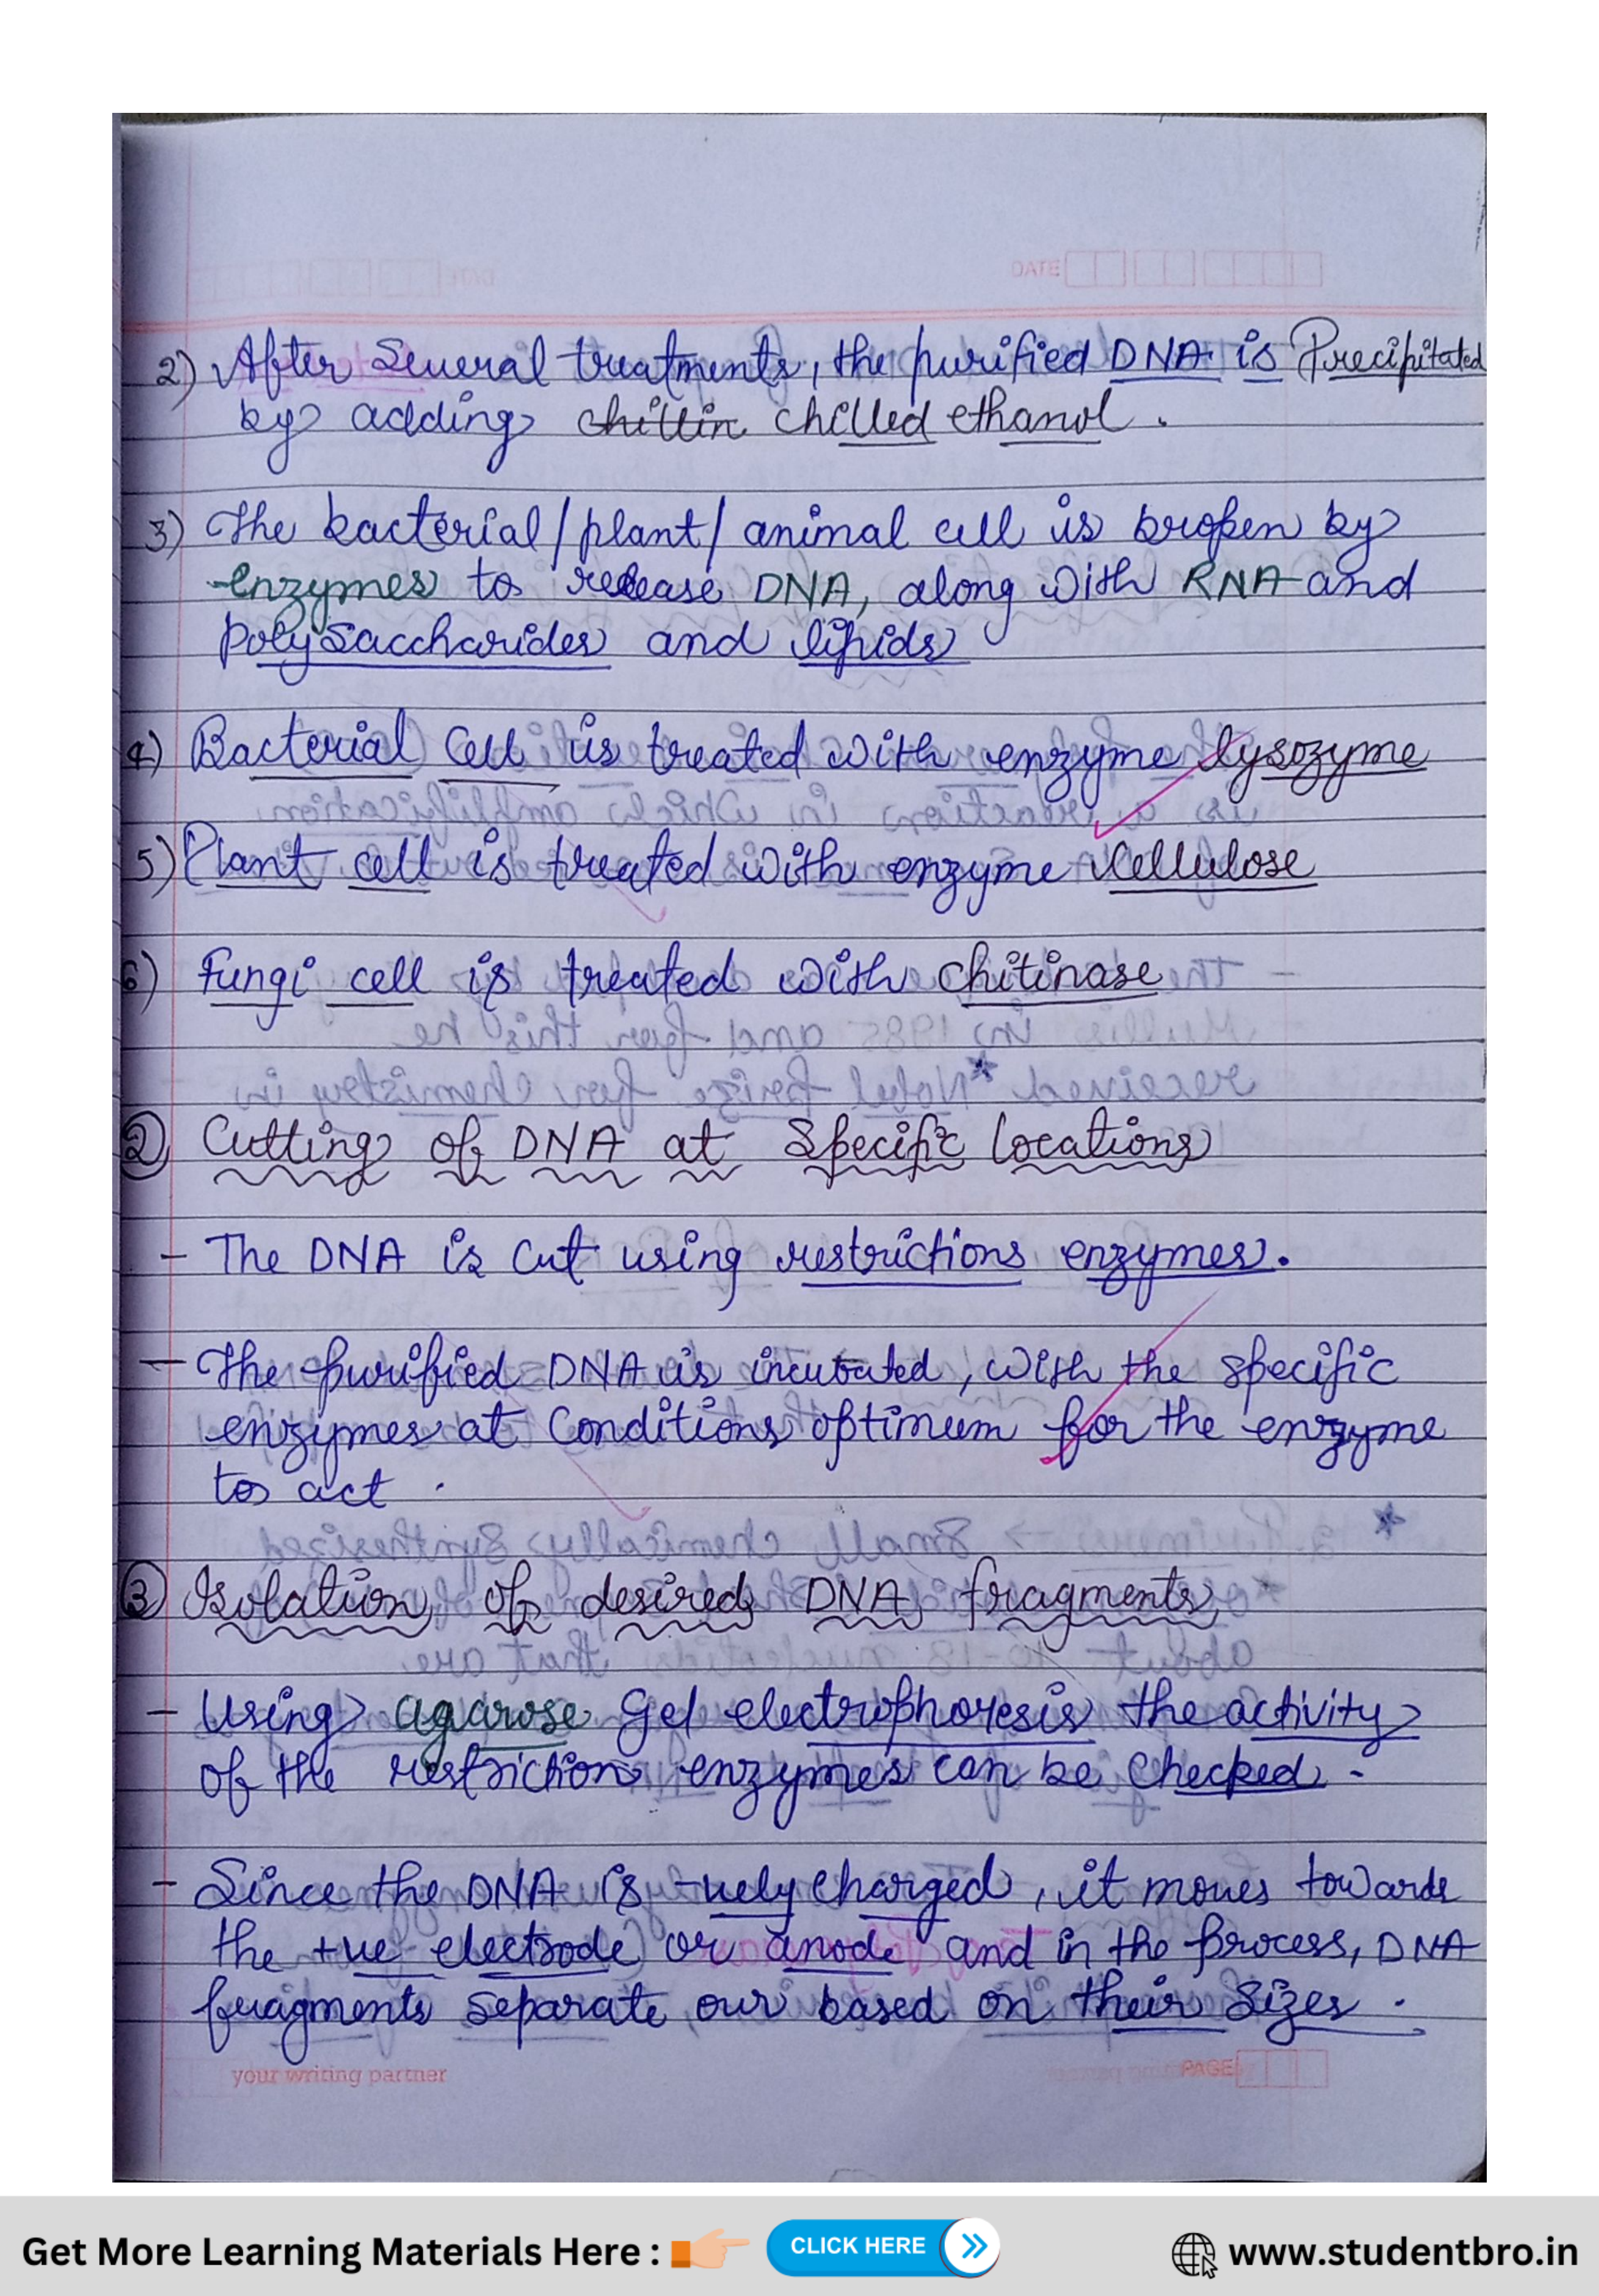 DATE
2) After Several treatments, the purified DNA is Precipitated
by adding chillin chilled ethanol.
3) The bacterial/plant/ animal cell is broken by
enzymes to release DNA, along with RNA and
polysaccharides and lipids
4) Bacterial Cell is treated with enzyme lysozyme
5) Plant cell is treated with enzyme cellulose
6) Fungi cell is treated with chitinase
② Cutting of DNA at Specific locations
- The DNA is cut using restrictions enzymes.
- The purified DNA is incubated, with the specific
enzymes at conditions optimum for the enzyme
to act.
③ Isolation of desired DNA fragments
- Using agarose Gel electrophoresis the activity
of the restriction enzymes can be checked.
- Since the DNA is -vely charged, it moves towards
the +ve electrode or anode and in the process, DNA
fragments separate our based on their sizes.
your writing partner
PAGE
Get More Learning Materials Here :
CLICK HERE
www.studentbro.in